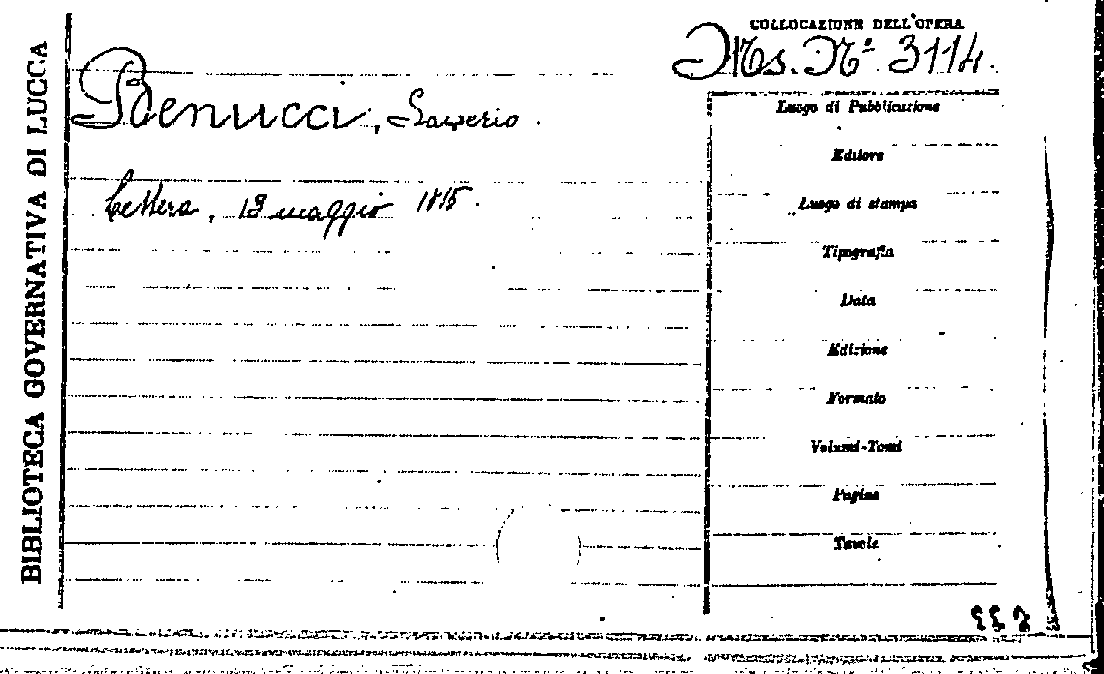 BIBLIOTECA GOVERNATIVA DI LUCCA
COLLOCAZIONE DELL'OPERA
Ms. Nº 3114.
Benucci, Saverio.
Lettera, 13 maggio 1815.
Luogo di Pubblicazione
Editore
Luogo di stampa
Tipografia
Data
Edizione
Formato
Volumi-Tomi
Pagine
Tavole